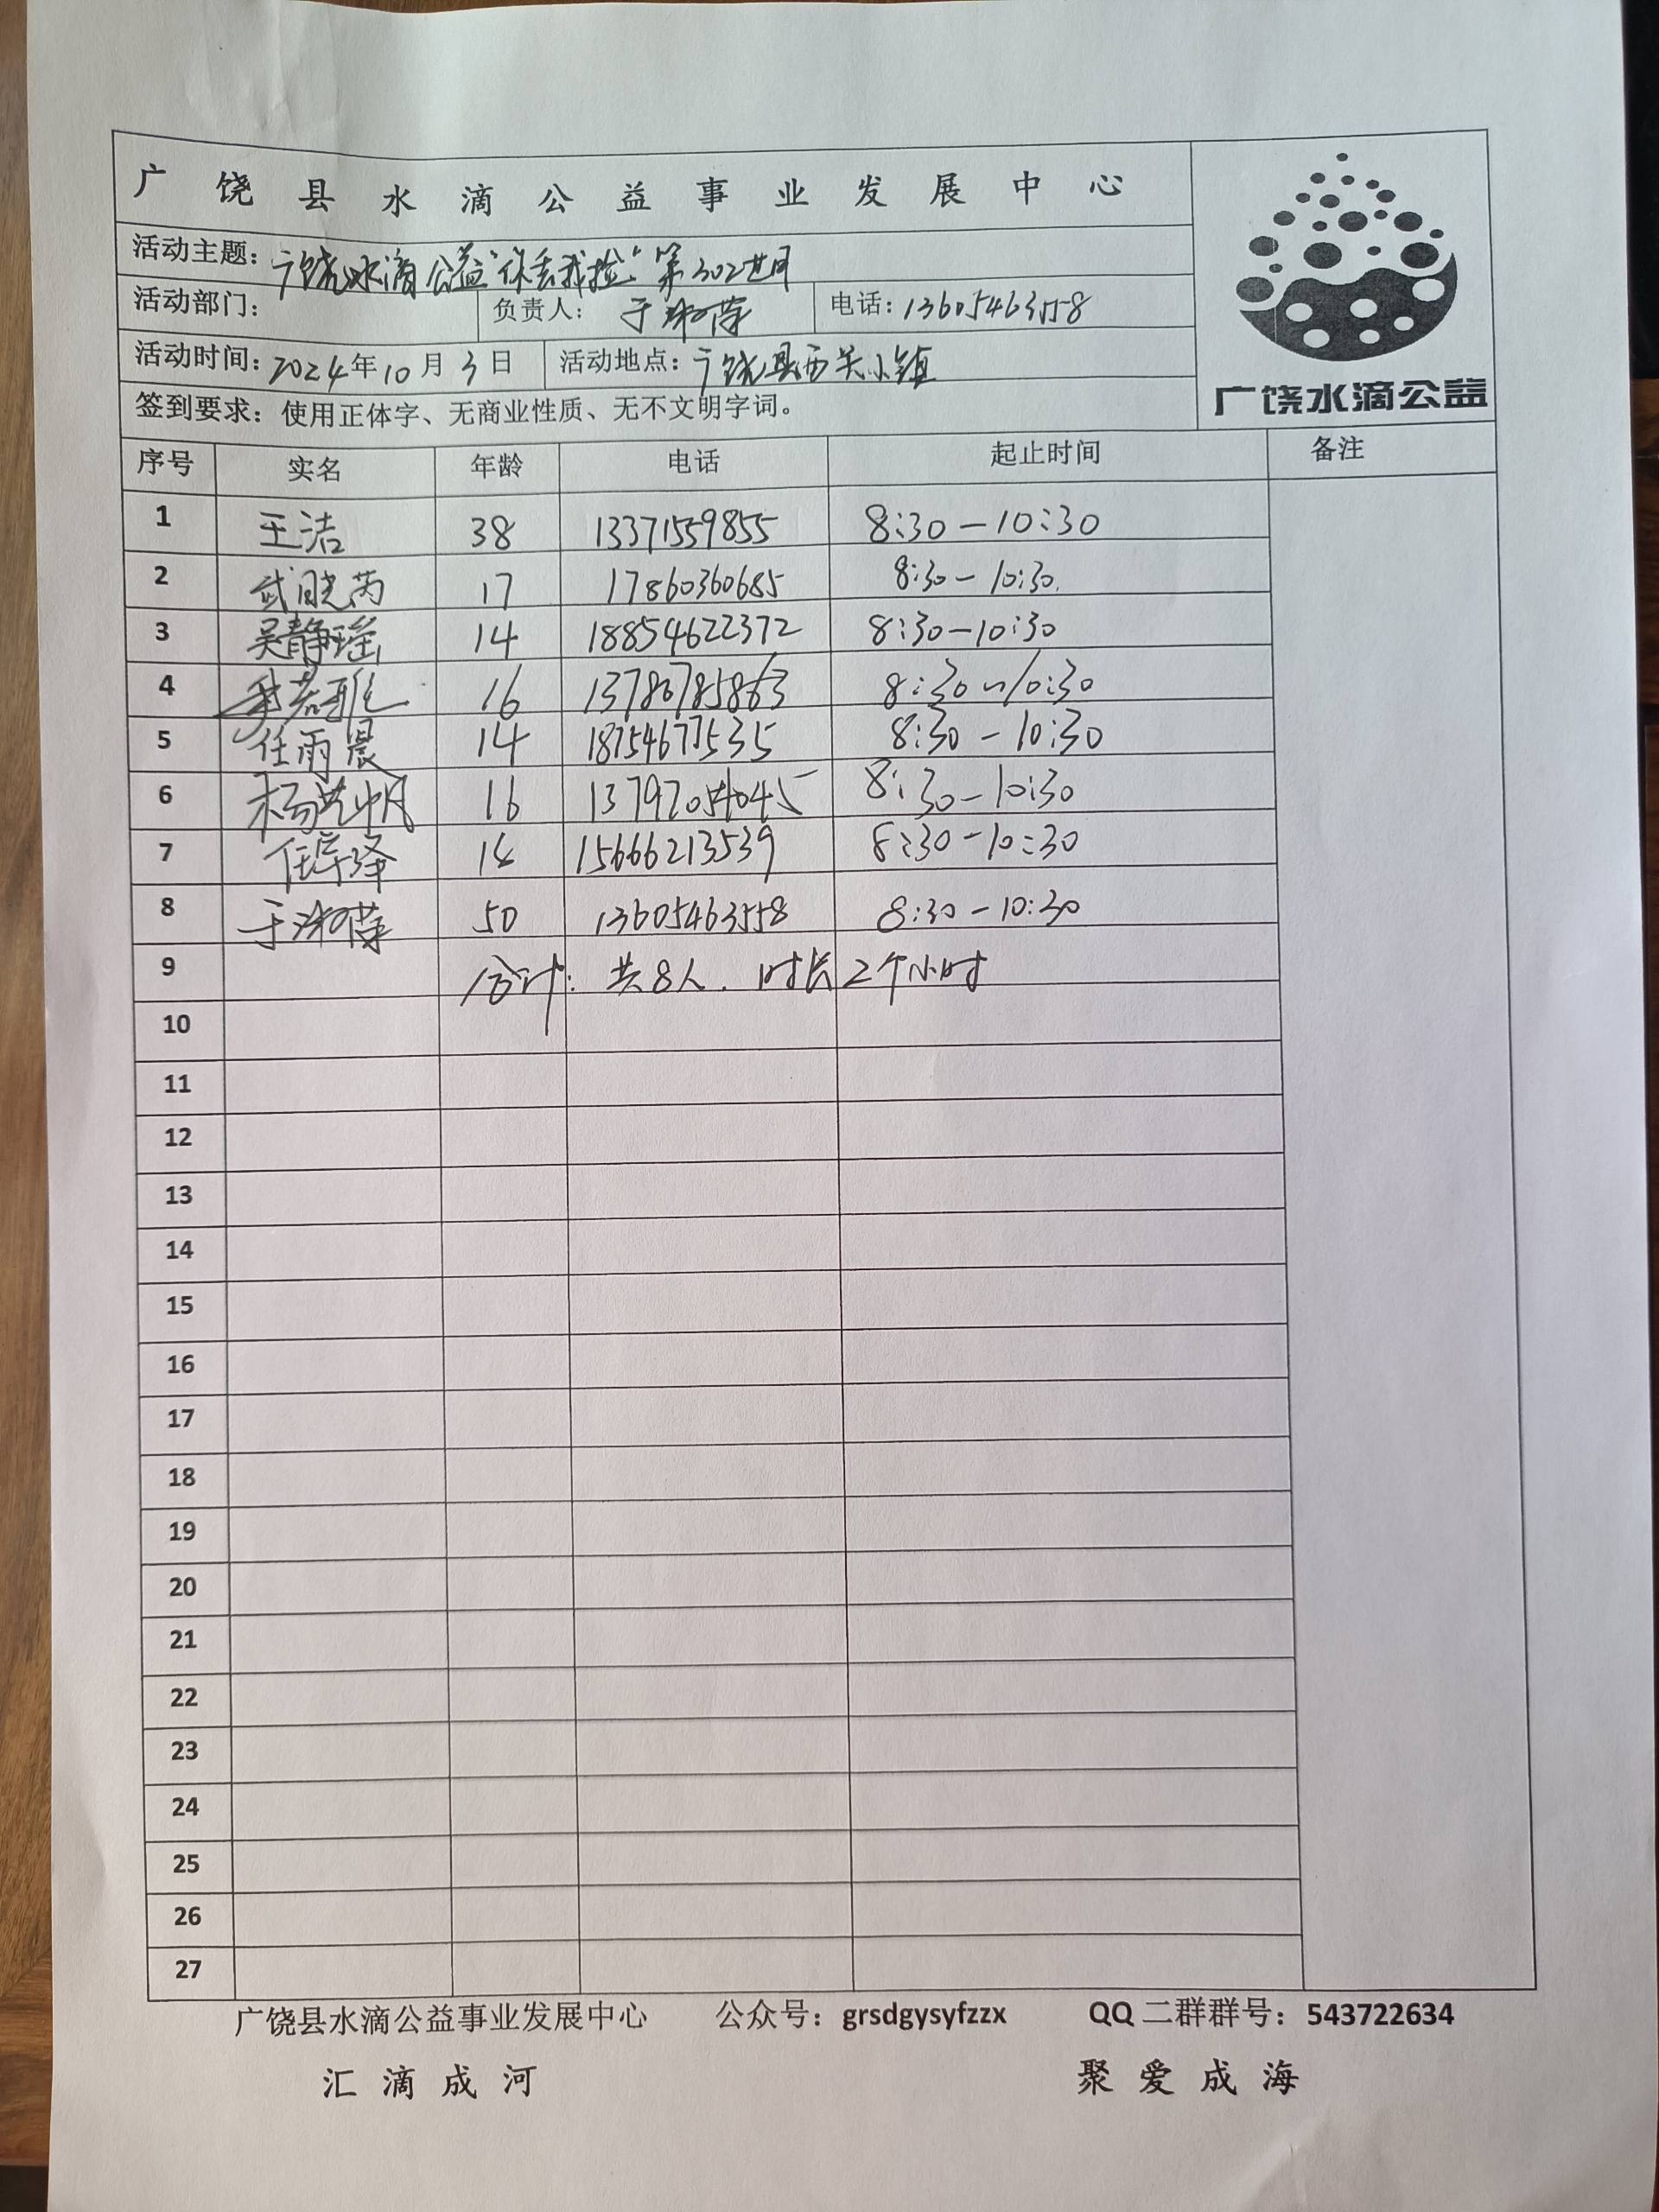 广饶县水滴公益事业发展中心
活动主题：广饶水滴公益“你丢我捡”第302期
活动部门： 负责人：于淑萍 电话：13605463558
活动时间：2024年10月3日 活动地点：广饶县西关小镇
签到要求：使用正体字、无商业性质、无不文明字词。
广饶水滴公益
序号 实名 年龄 电话 起止时间 备注
1 王洁 38 13371559855 8:30-10:30
2 武晓芮 17 17860360685 8:30-10:30.
3 吴静瑶 14 18854622372 8:30-10:30
4 16 13780785863 8:30~10:30
5 任雨晨 14 18754677535 8:30-10:30
6 16 8:30-10:30
7 15666213539 8:30-10:30
8 于淑萍 50 13605463558 8:30-10:30
9 合计：共8人. 时长2个小时
10
11
12
13
14
15
16
17
18
19
20
21
22
23
24
25
26
27
广饶县水滴公益事业发展中心 公众号：grsdgysyfzzx QQ二群群号：543722634
汇滴成河 聚爱成海